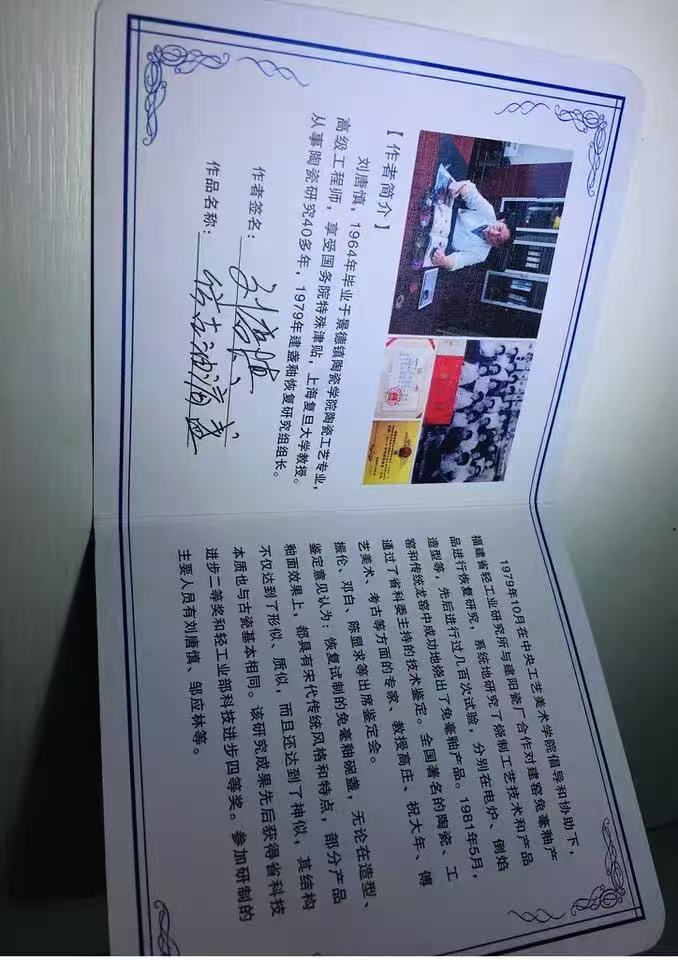 【作者简介】
刘唐慎，1964年毕业于景德镇陶瓷学院陶瓷工艺专业，
高级工程师，享受国务院特殊津贴，上海复旦大学教授。
从事陶瓷研究40多年，1979年建盏釉恢复研究组组长。
作者签名：刘唐慎
作品名称：油滴盏
1979年10月在中央工艺美术学院倡导和协助下，
福建省轻工业研究所与建阳瓷厂合作对建窑兔毫釉产
品进行恢复研究，系统地研究了烧制工艺技术和产品
造型等，先后进行过几百次试验，分别在电炉、倒焰
窑和传统龙窑中成功地烧出了兔毫釉产品。1981年5月，
通过了省科委主持的技术鉴定。全国著名的陶瓷、工
艺美术、考古等方面的专家、教授高庄、祝大年、傅
振伦、邓白、陈显求等出席鉴定会。
鉴定意见认为：恢复试制的兔毫釉碗盏，无论在造型、
釉面效果上，都具有宋代传统风格和特点，部分产品
不仅达到了形似、质似，而且还达到了神似，其结构
本质也与古瓷基本相同。该研究成果先后获得省科技
进步二等奖和轻工业部科技进步四等奖。参加研制的
主要人员有刘唐慎、邹应林等。